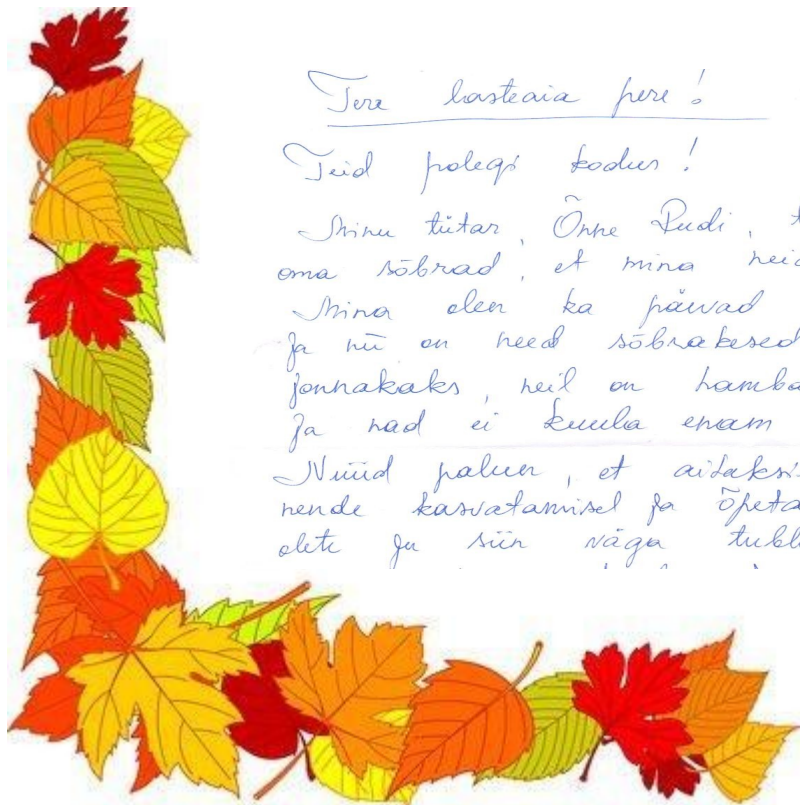 Tere lasteaia pere!
Teid polegi kodus!
Minu tütar, Õnne Rudi, t
oma sõbrad, et mina neid
Mina olen ka päevad
ja nii on need sõbrakesed
jonnakaks, neil on hamba
ja nad ei kuula enam
Nüüd palun, et aitaksi
nende kasvatamisel ja õpeta
olete ju siin väga tubl